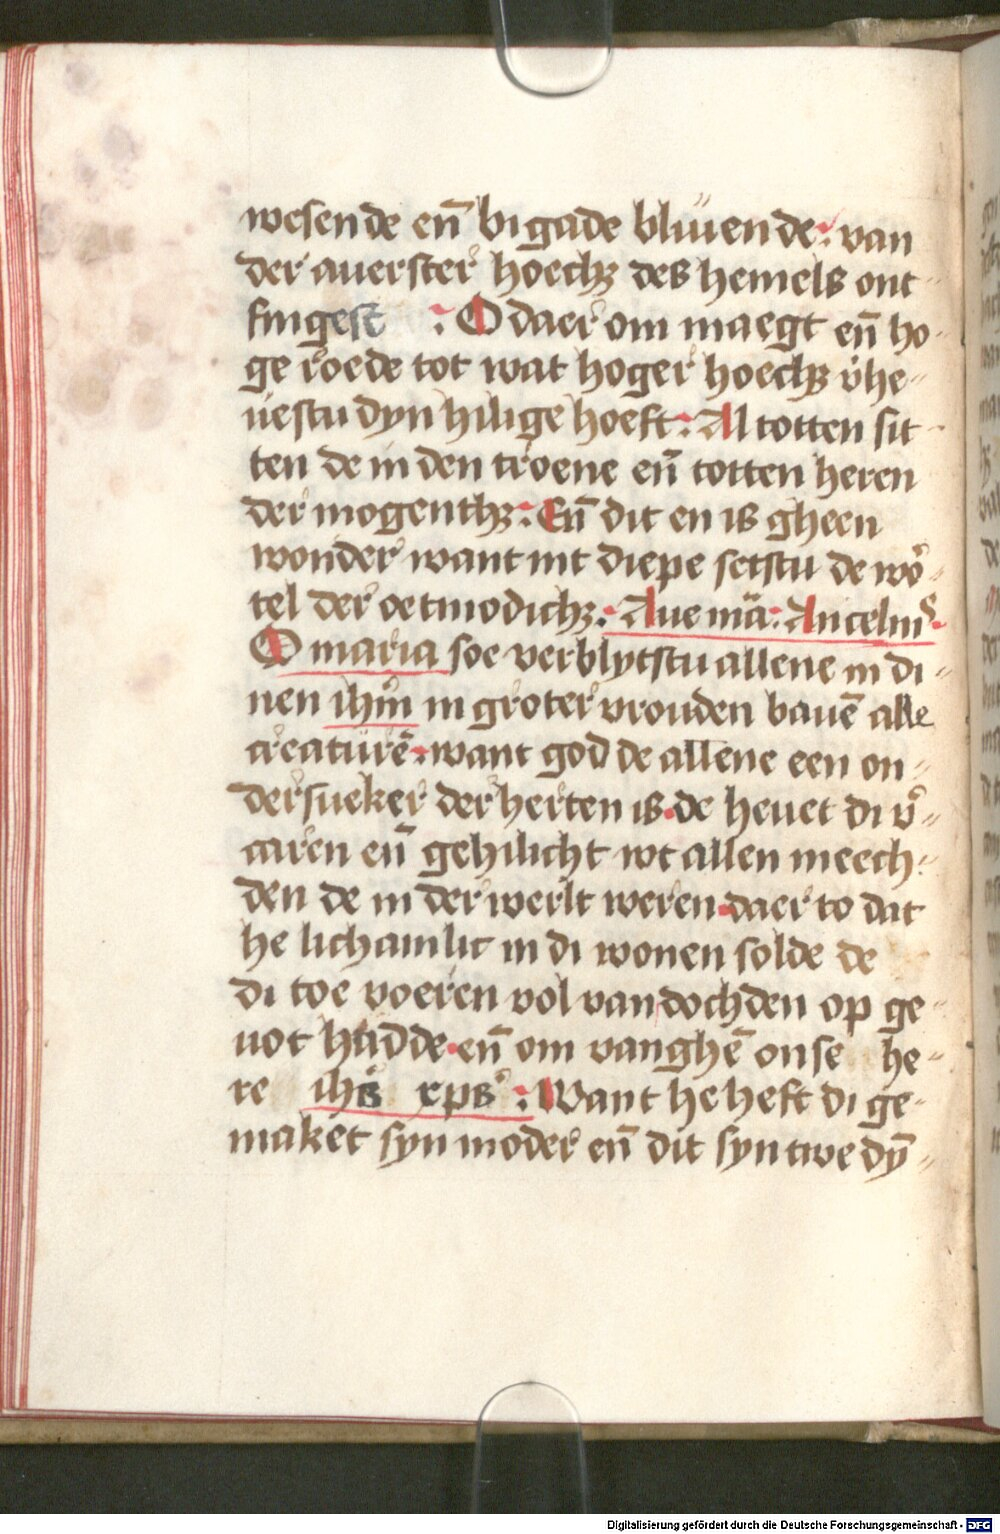 wesende en̄ bi gade bluͤende : van
der auerster hoechꝫ des hemels ont
fingest : O daer om maegt en̄ ho-
ge roede tot wat hoger hoechꝫ v̓he-
uestu dyn hilige hoeft : Al totten sit-
ten de in den troene en̄ totten heren
der mogenthꝫ : En̄ dit en is gheen
wonder want int diepe setstu de wo͛-
tel der oetmodichꝫ : Aue mā : Ancelmꝰ
O maria soe verblytstu allene in di-
nen ihm̄ in groter vrouden bauē alle
creaturē want god de allene een on-
dersueker der herten is de heuet di v̓-
caren en̄ gehilicht wt allen meech-
den de in der werlt weren daer to dat
he lichamlic in di wonen solde de
di toe voeren vol van dochden op ge-
uot hadde en̄ om vanghē onse he-
re ihs̄ xps̄ : Want he heft di ge-
maket syn moder en̄ dit syn twe dȳ-
Digitalisierung gefördert durch die Deutsche Forschungsgemeinschaft - DFG